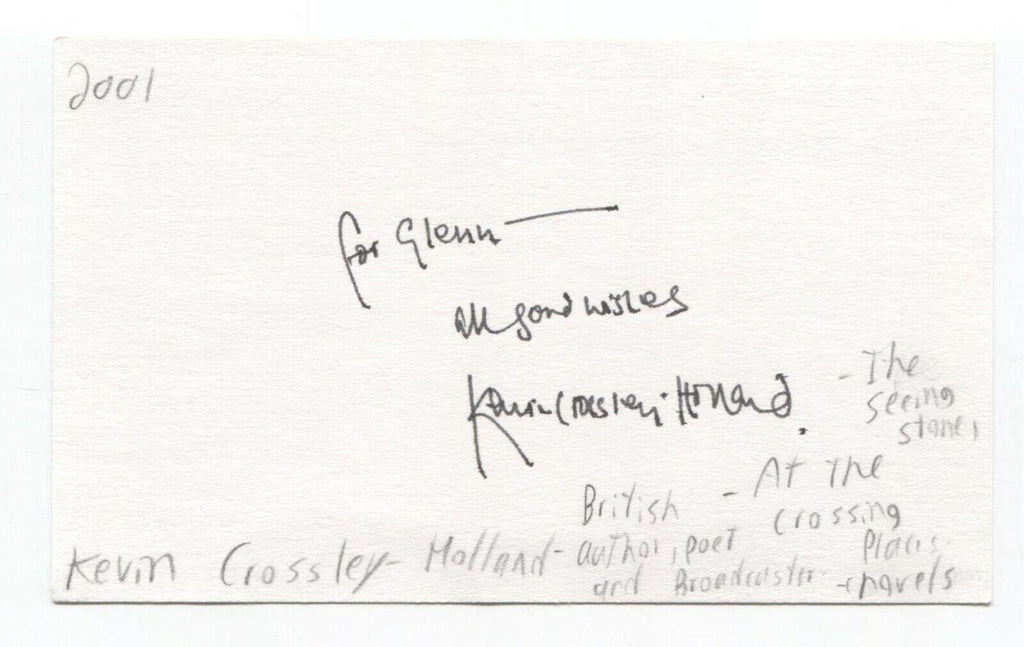 2001
for Glenn
all good wishes
Kevin Crossley-Holland.
- The
seeing
stone,
British - At The
author, poet crossing
and Broadcaster Places
Kevin Crossley-Holland - - novels